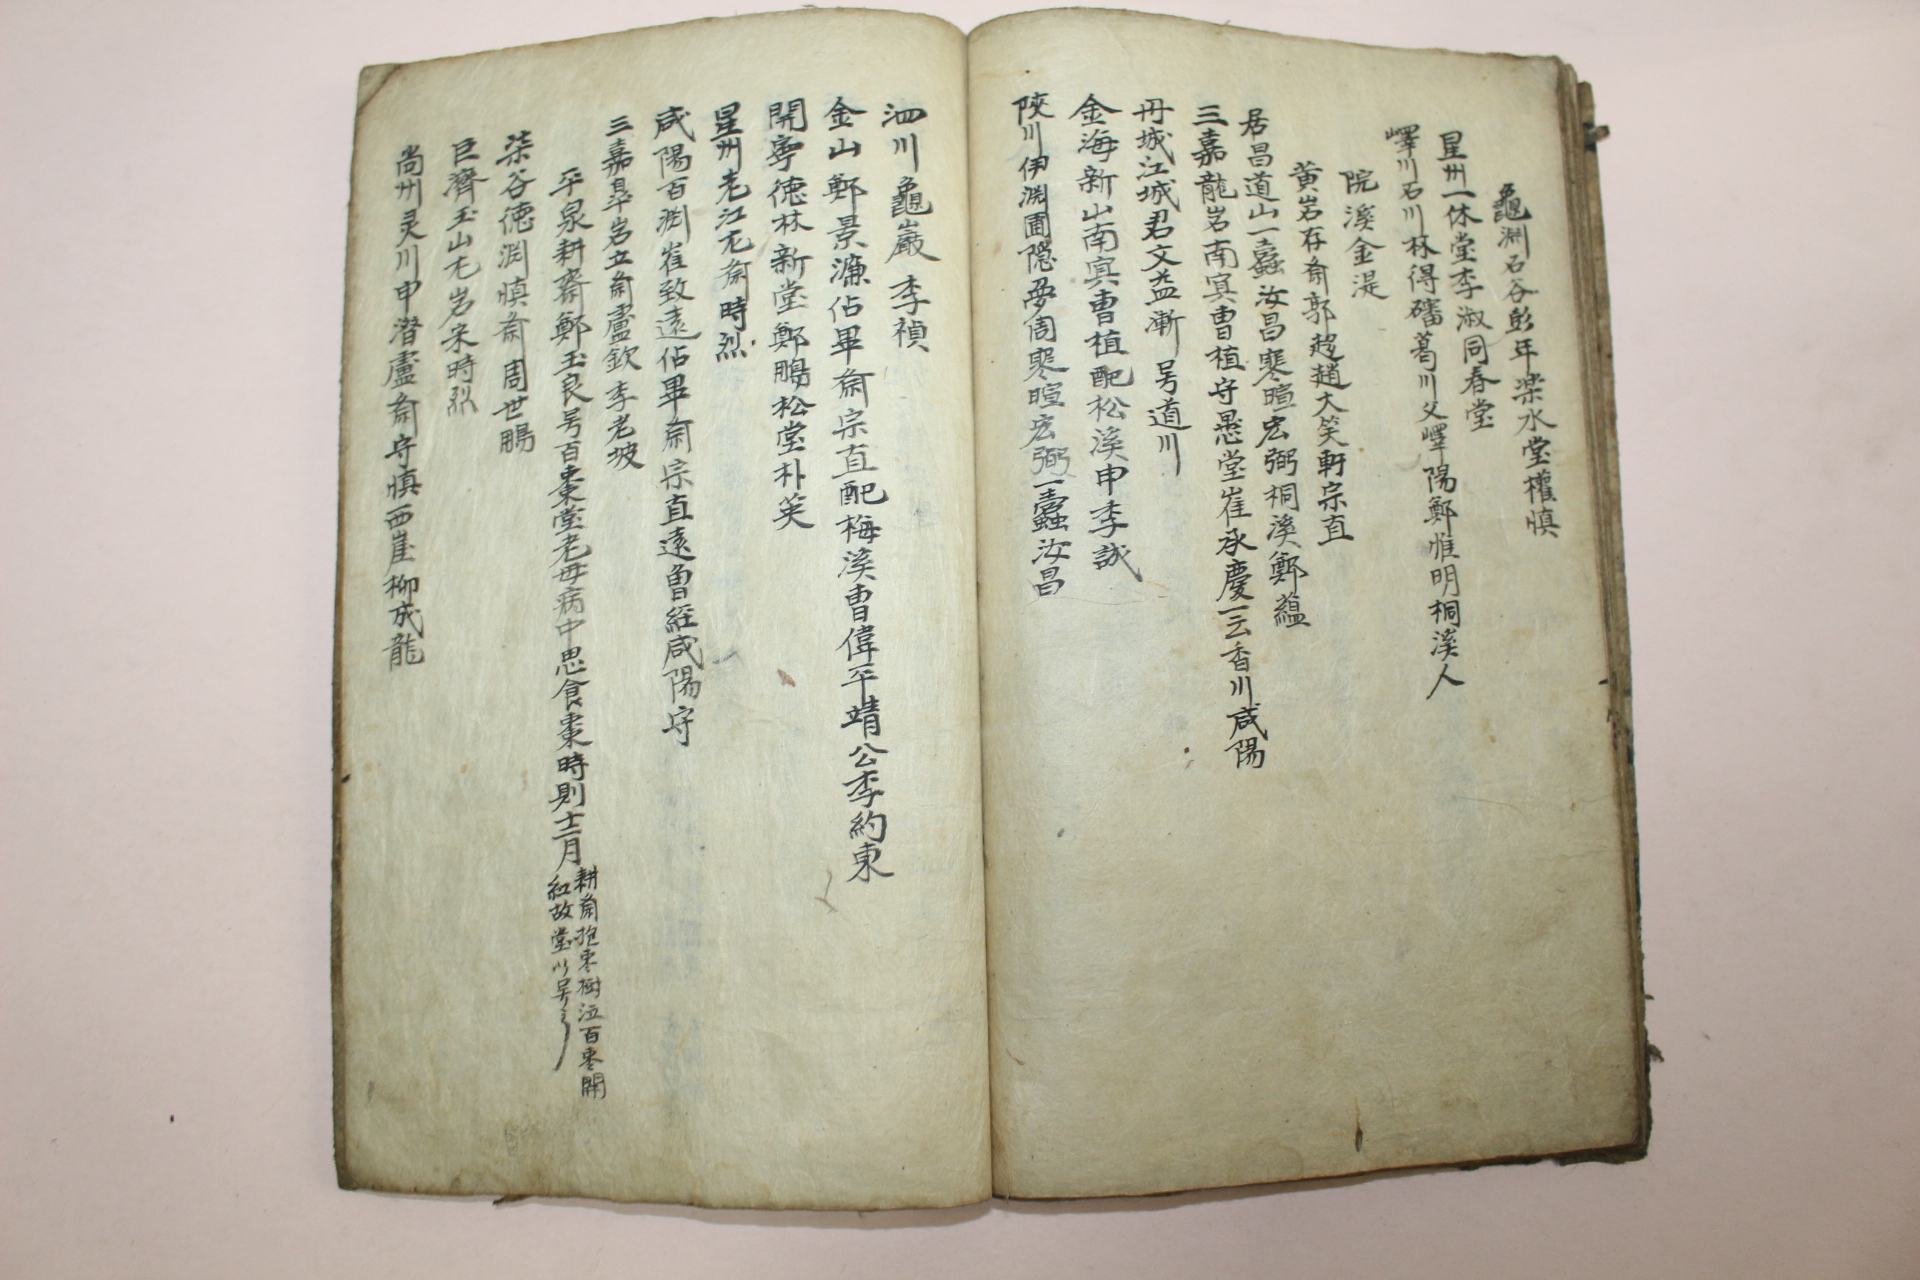 龜淵石谷彭年楽水堂權愼
星州一休堂李淑同春堂
嶧川石川林得磻葛川父嶧陽鄭惟明桐溪人
院溪金湜
黃岩存斎郭䞭趙大笑軒宗直
居昌道山一蠹汝昌寒暄宏弼桐溪鄭蘊
三嘉龍岩南冥曹植守愚堂崔承慶一云香川咸陽
丹城江城君文益漸 号道川
金海新山南冥曹植配松溪申季誠
陜川伊淵圃隱夢周寒暄宏弼一蠹汝昌
泗川龜巖李禎
金山鄭景濂佔畢斎宗直配梅溪曹偉平靖公李約東
開寧徳林新堂鄭鵬松堂朴英
星州老江尤斎時烈
咸陽百淵崔致遠佔畢斎宗直遠曾経咸陽守
三嘉岩立斎盧欽李老坡
平泉耕齋鄭玉良号百棗堂老母病中思食棗時則十二月
耕斎抱枣樹泣百枣開
紅故堂以号之
柒谷徳淵愼斎周世鵬
巨濟玉山尤岩宋時烈
尚州灵川申潜盧斎守愼西崖柳成龍